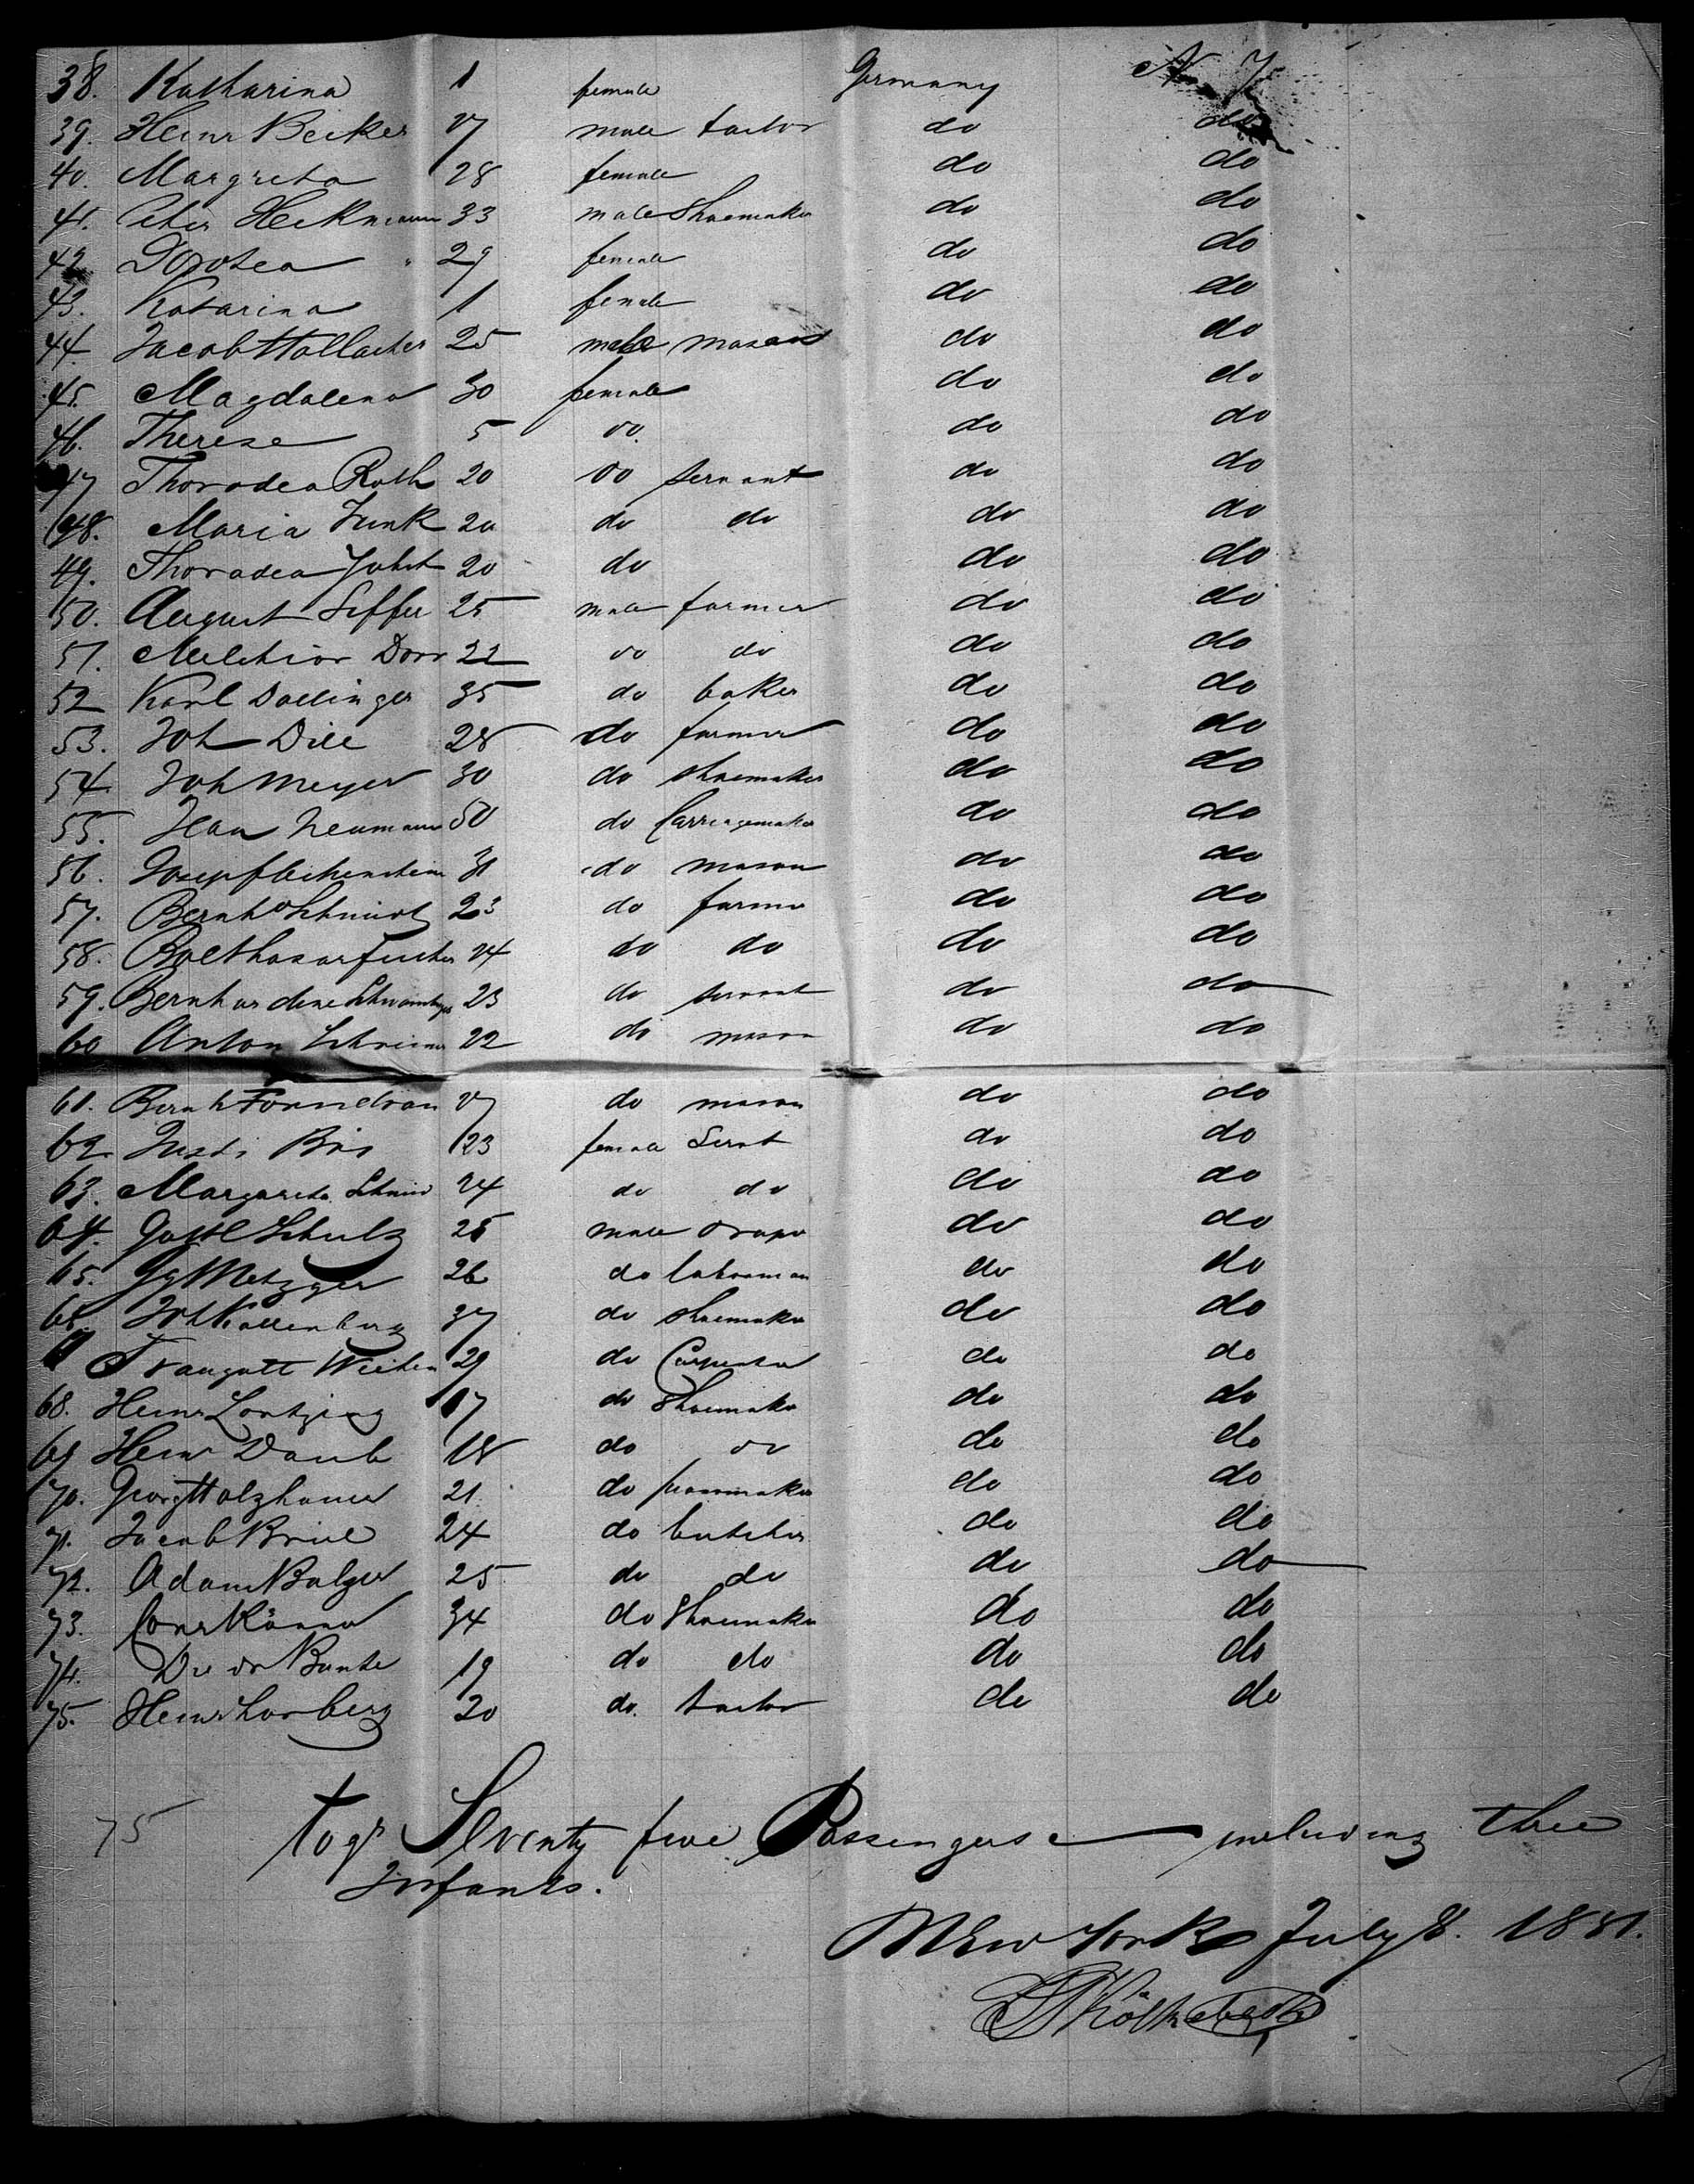 38. Katharina 1 female Germany N. Y.
39. Heinr Becker 27 male tailor do do
40. Margreta 28 female do do
41. Peter Heckmann 33 male Shoemaker do do
42. Dorotea " 29 female do do
43. Katarina 1 female do do
44. Jacob Hollacher 25 male mason do do
45. Magdalena 30 female do do
46. Therese 5 do. do do
47 Thoradea Roth 20 do servant do do
48. Maria Funk 20 do do do do
49. Thoradea 20 do do do
50. August Seffer 25 male farmer do do
51. Melchior Dorr 22 do do do do
52 Karl Dollinger 35 do baker do do
53. Joh Dill 28 do farmer do do
54. Joh Meyer 30 do shoemaker do do
55. Neumann 50 do Carriagemaker do do
56. 31 do mason do do
57. Bernhd Schmidt 23 do farmer do do
58. Balthasar Fischer 24 do do do do
59. Bernhardine 23 do servant do do
60 Anton Schreiner 22 do mason do do
61. Bernh 27 do mason do do
62. 23 female Servt do do
63. Margareta Schmid 24 do do do do
64. Gottl Schulz 25 male draper do do
65. Gg Metzger 26 do laborman do do
66. Joh Kallenberg 37 do shoemaker do do
Traugott 29 do Carpenter do do
68. Heinr Lortzing 17 do Shoemaker do do
69 Heinr Daub 18 do do do do
70. Georg Holzhauer 21. do do do
71. Jacob Brill 24 do butcher do do
72. Adam Balzer 25 do do do do
73. Conr 34 do Shoemaker do do
74. 19 do do do do
75. Heinr Lorberg 20 do. tailor do do
75 togr Seventy five Passengers including three
Infants.
New York July 8. 1881.